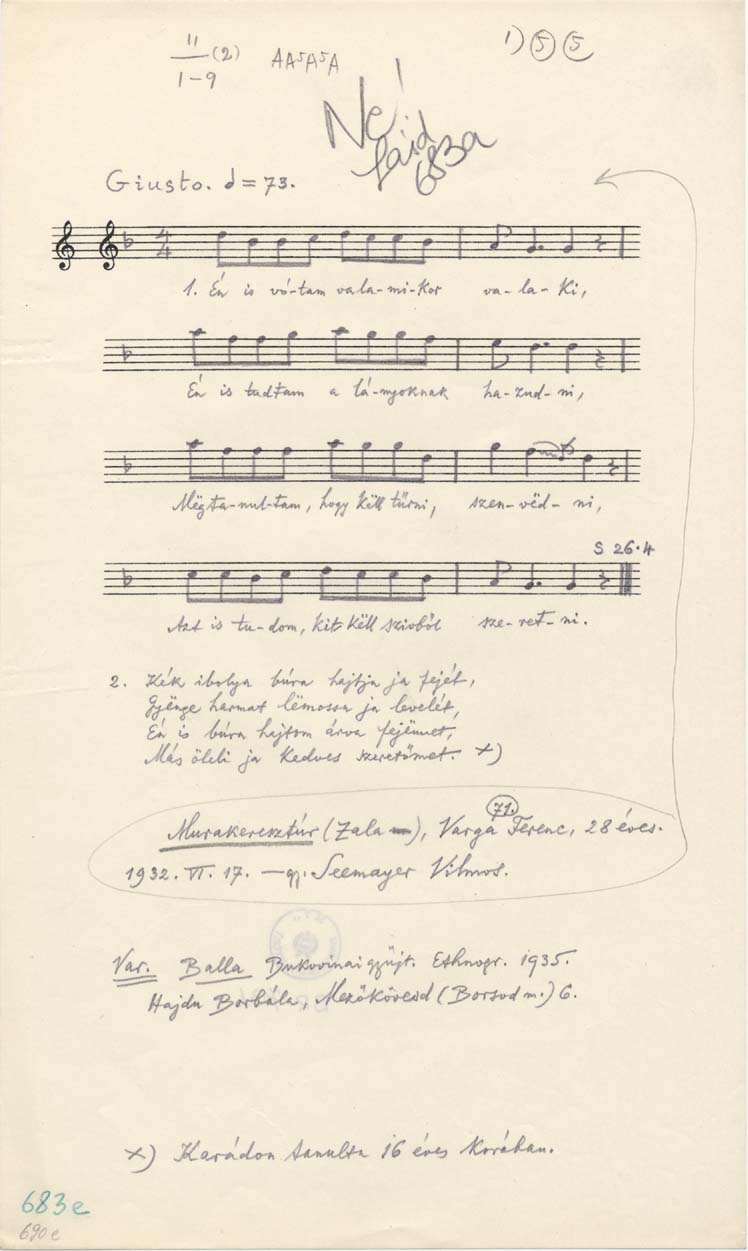 11/1-9 (2) AA⁵A⁵A 1) 5 5
Ne!
683a
Giusto. d = 73.
1. Én is vó-tam vala-mi-kor va-la-ki,
Én is tudtam a lá-nyoknak ha-zud-ni,
Mëgta-nul-tam, hogy këll tűrni, szen-vëd-ni,
S 26.4
Azt is tu-dom, kit këll szivből sze-ret-ni.
2. Kék ibolya búra hajtja ja fejét,
Gyënge harmat lëmossa ja levelét,
Én is búra hajtom árva fejemet,
Más öleli ja kedves szeretőmet. x)
Murakeresztúr (Zala), Varga Ferenc, 28 éves.
71.
1932. VI. 17. – gy. Seemayer Vilmos.
Var. Balla Bukovinai gyüjt. Ethnogr. 1935.
Hajdu Borbála, Mezőkövesd (Borsod m.) 6.
x) Karádon tanulta 16 éves korában.
683e
690e